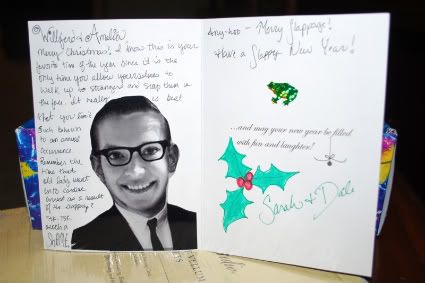 Willford + Amelia
Merry Christmas! I know this is your
favorite time of the year since it is the
only time you allow yourselves to
walk up to strangers and slap them in
the face. It really is best
that you limit
such behavior
to an annual
occurrence.
Remember the
time that
old lady went
into cardiac
arrest as a result
of the slapping?
Tsk-tsk.
such a
SHAME.
Any-hoo - Merry Slappage!
Have a Slappy New Year!
...and may your new year be filled
with fun and laughter!
Sarah + Dale